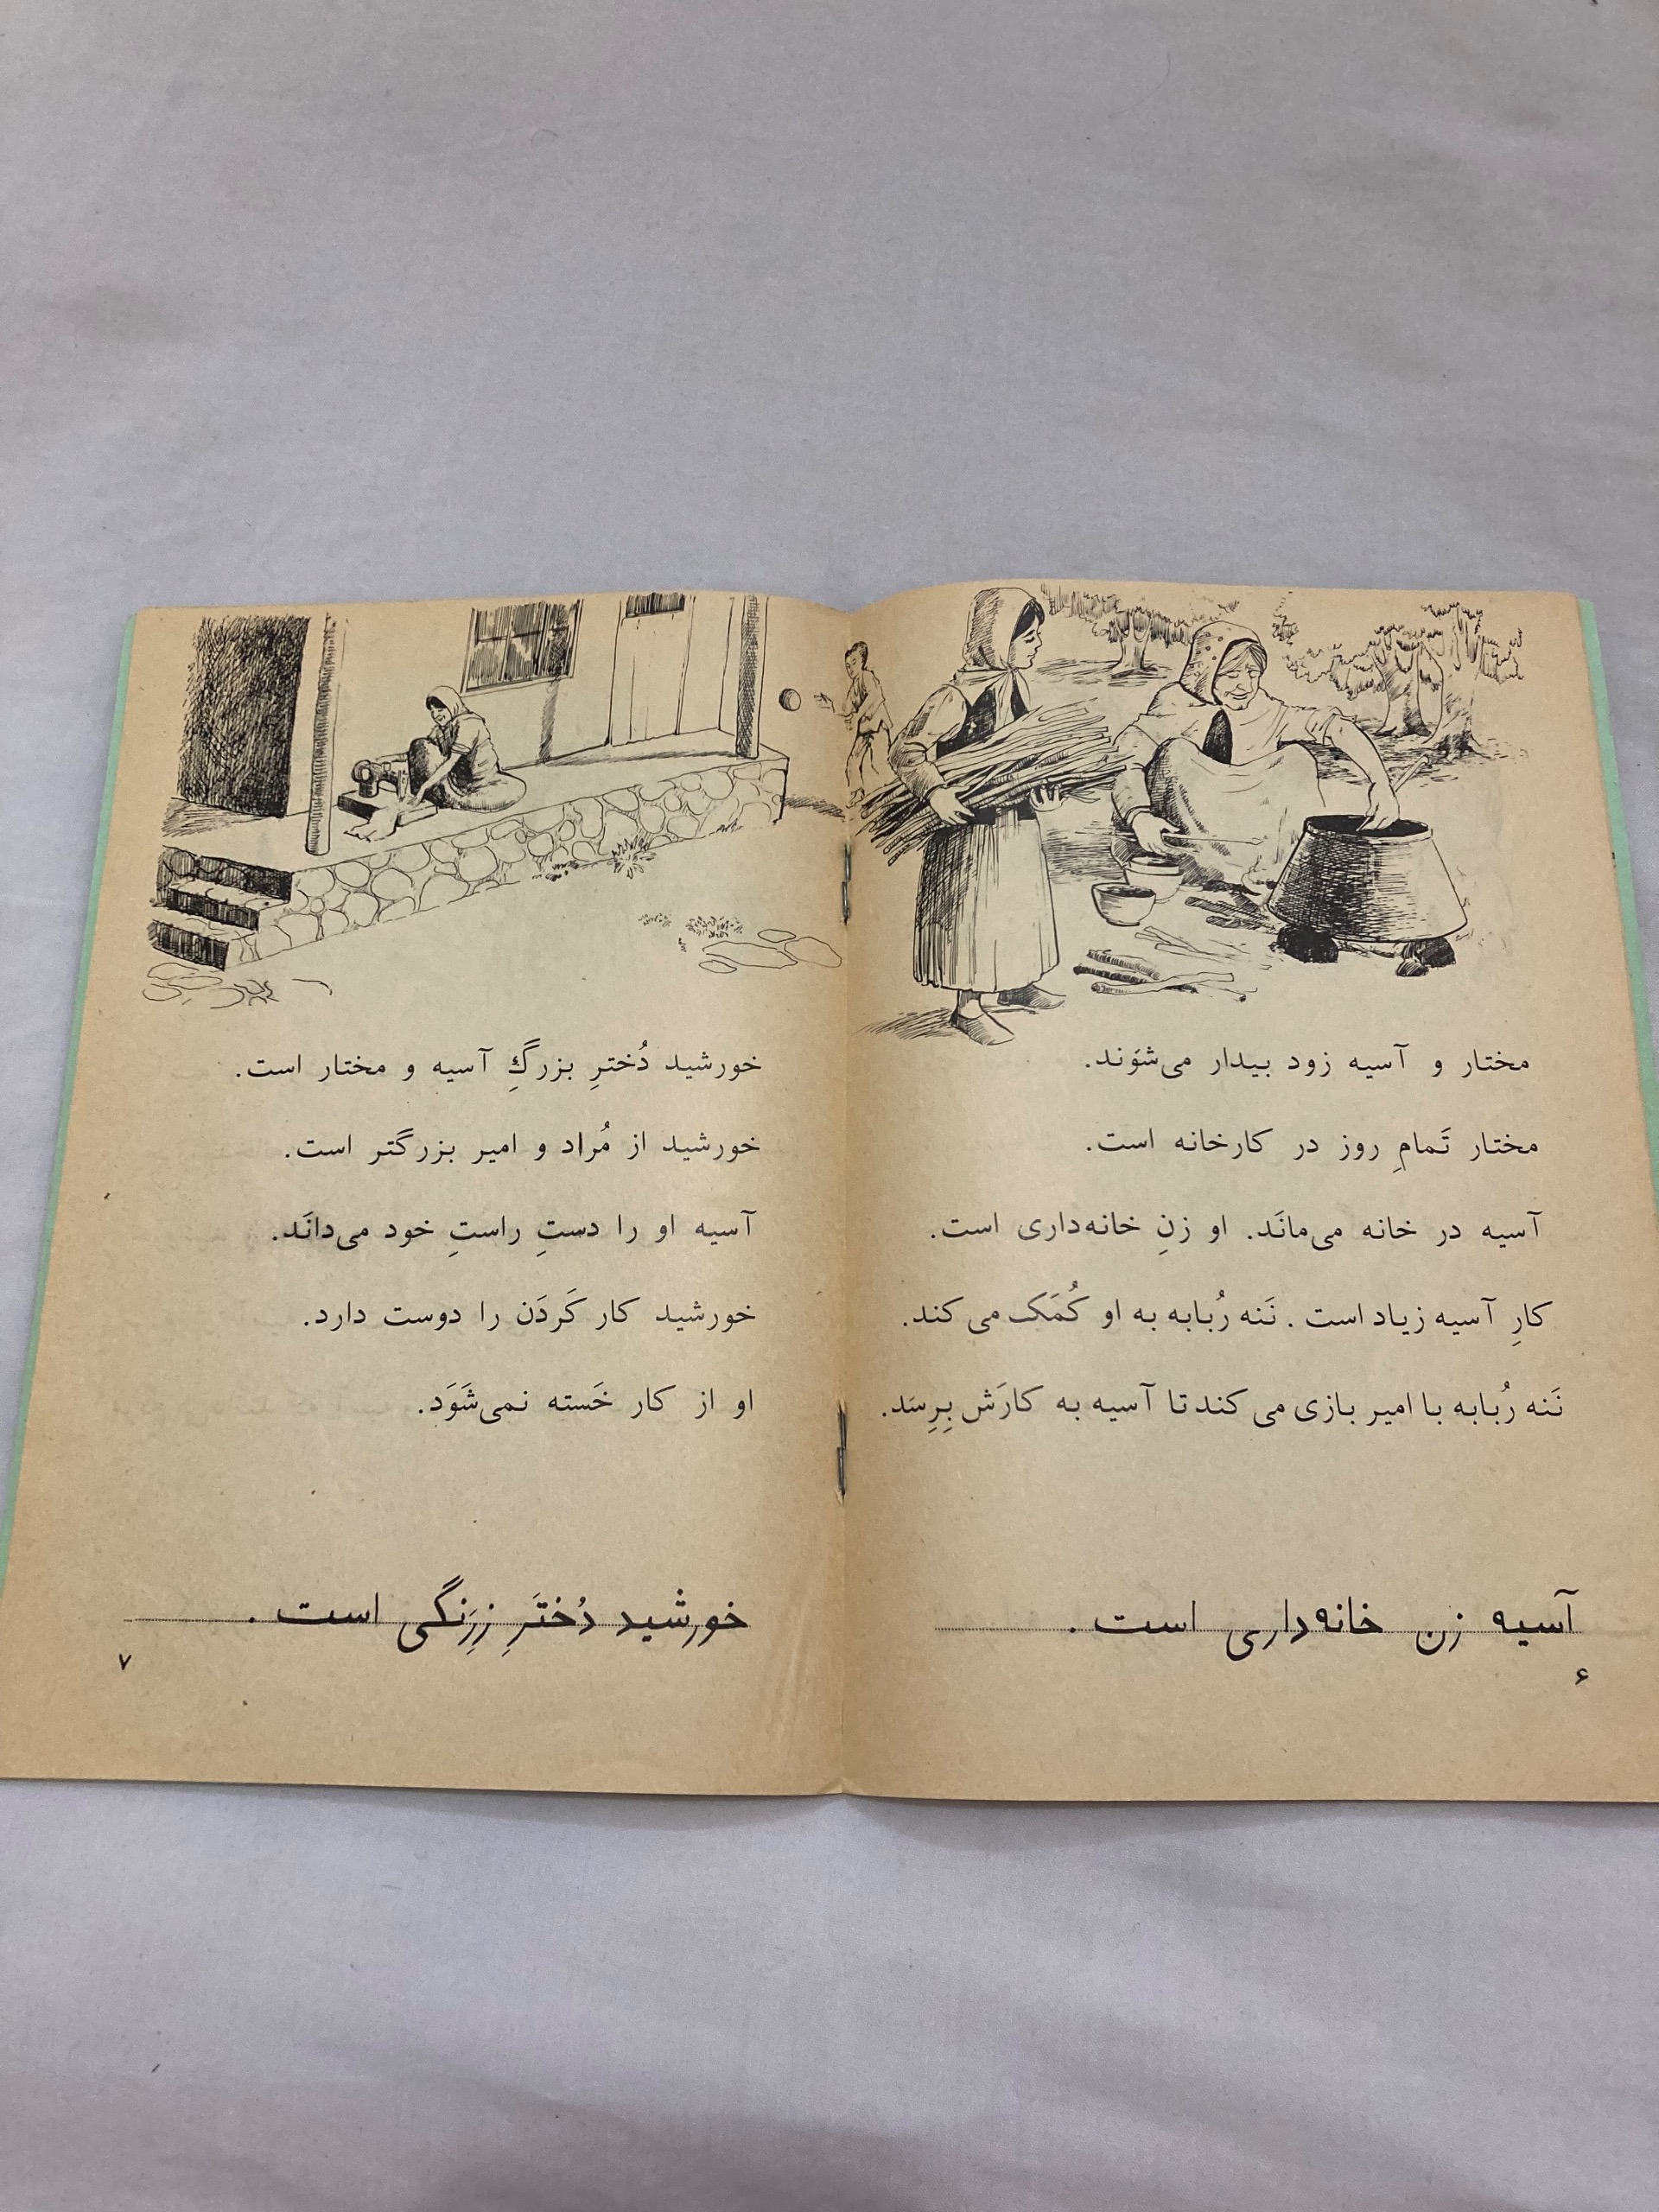 مختار و آسیه زود بیدار می‌شوَند.
مختار تَمامِ روز در کارخانه است.
آسیه در خانه می‌مانَد. او زنِ خانه‌داری است.
کارِ آسیه زیاد است. نَنه رُبابه به او کُمَک می‌کند.
نَنه رُبابه با امیر بازی می‌کند تا آسیه به کارَش بِرِسَد.
آسیه زن خانه‌داری است.
۶
خورشید دُخترِ بزرگِ آسیه و مختار است.
خورشید از مُراد و امیر بزرگتر است.
آسیه او را دستِ راستِ خود می‌دانَد.
خورشید کار کَردَن را دوست دارد.
او از کار خَسته نمی‌شَوَد.
خورشید دُختَرِ زِرَنگی است.
۷